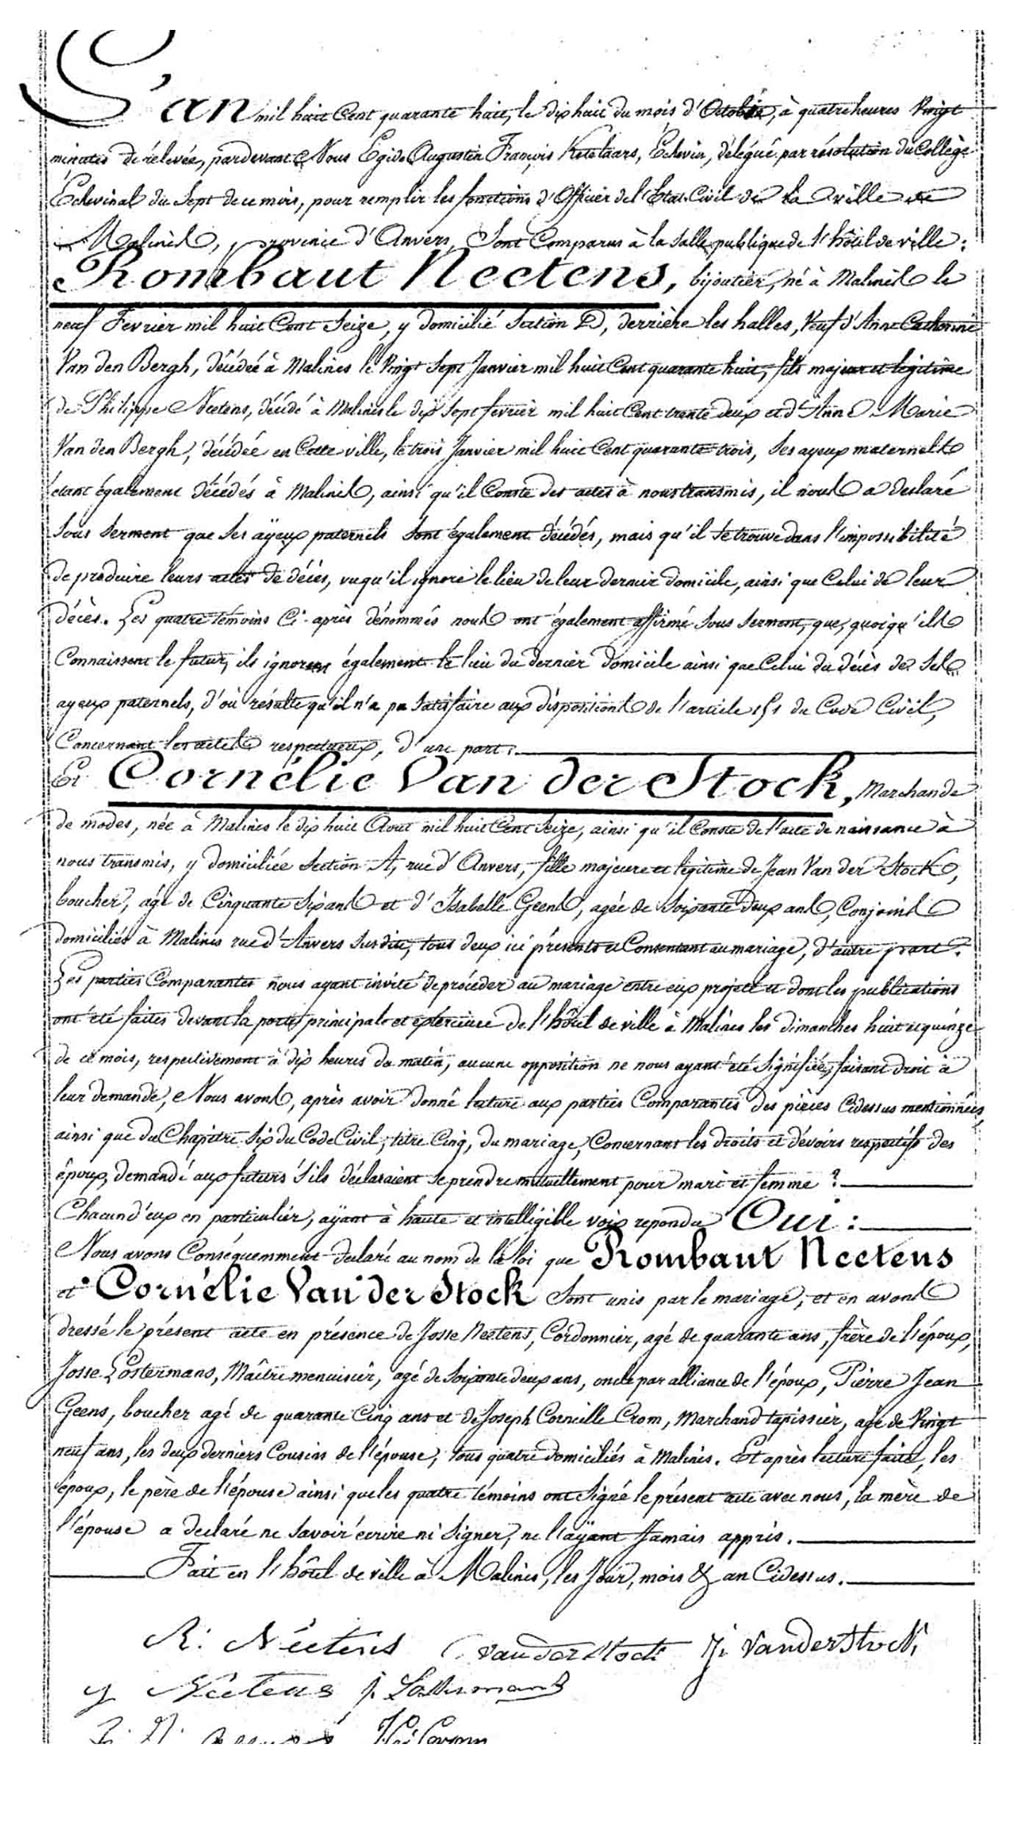 L'an mil huit Cent quarante huit, le dix huit du mois d'Octobre, à quatre heures Vingt
minutes de relevée, pardevant Nous Egide Augustin François Ketelaars, Echevin, délégué par résolution du Collège
Echevinal du Sept de ce mois, pour remplir les fonctions d'Officier de l'Etat-Civil de la ville de
Malines, province d'Anvers, Sont Comparus à la Salle publique de l'hôtel de ville:
Rombaut Neetens, bijoutier, né à Malines le
neuf Fevrier mil huit Cent Seize, y domicilié Section D, derrière les halles, Veuf d'Anne Catherine
Van den Bergh, décédée à Malines le Vingt Sept Janvier mil huit Cent quarante huit, fils majeur et légitime
de Philippe Neetens, décédé à Malines le dix Sept fevrier mil huit Cent trente deux et d'Anne Marie
Van den Bergh, décédée en Cette ville, le trois Janvier mil huit Cent quarante trois, Ses ayeux maternels
étant également décédés à Malines, ainsi qu'il Conste des actes à nous transmis, il nous a declaré
Sous Serment que Ses ayeux paternels Sont également décédés, mais qu'il Se trouve dans l'impossibilité
de produire leurs actes de décès, vu qu'il ignore le lieu de leur dernier domicile, ainsi que Celui de leur
décès. Les quatre témoins Ci-après dénommés nous ont également affirmé Sous Serment, que, quoiqu'ils
Connaissent le futur, ils ignorent également le lieu du dernier domicile ainsi que Celui du décès de Ses
ayeux paternels, d'où résulte qu'il n'a pu Satisfaire aux dispositions de l'article 151 du Code Civil,
Concernant les actes respectueux, d'une part:
Et Cornélie Van der Stock, Marchande
de modes, née à Malines le dix huit Aout mil huit Cent Seize, ainsi qu'il Conste de l'acte de naissance à
nous transmis, y domiciliée Section A, rue d'Anvers, fille majeure et légitime de Jean Van der Stock,
boucher, agé de Cinquante Six ans et d'Isabelle Geens, agée de Soixante deux ans, Conjoints
domiciliés à Malines rue d'Anvers Susdite, tous deux ici présents et Consentant au mariage, d'autre part.
Les parties Comparantes nous ayant invité de procéder au mariage entre eux projeté et dont les publications
ont été faites devant la porte principale et extérieure de l'hôtel de ville à Malines les dimanches huit et quinze
de ce mois, respectivement à dix heures du matin, aucune opposition ne nous ayant été Signifiée, faisant droit à
leur demande, Nous avons, après avoir donné lecture aux parties Comparantes des pièces Cidessus mentionnées,
ainsi que du Chapitre Six du Code Civil, titre Cinq, du mariage, Concernant les droits et dévoirs respectifs des
époux, demandé aux futurs S'ils déclaraient Se prendre mutuellement pour mari et femme?
Chacun d'eux en particulier, ayant à haute et intelligible voix répondu Oui:
Nous avons Conséquemment declaré au nom de la loi que Rombaut Neetens
et Cornélie Van der Stock Sont unis par le mariage, et en avons
dressé le présent acte en présence de Josse Neetens, Cordonnier, agé de quarante ans, frère de l'époux,
Josse Lostermans, Maître menuisier, agé de Soixante deux ans, oncle par alliance de l'époux, Pierre Jean
Geens, boucher agé de quarante Cinq ans et de Joseph Corneille Crom, Marchand tapissier, agé de Vingt
neuf ans, les deux derniers Cousins de l'épouse, tous quatre domiciliés à Malines. Et après lecture faite, les
époux, le père de l'épouse ainsi que les quatre témoins ont Signé le présent acte avec nous, la mère de
l'épouse a declaré ne Savoir écrire ni Signer, ne l'ayant Jamais appris.
Fait en l'hôtel de ville à Malines, les Jour, mois & an Cidessus.
R: Néetens C vanderstock J: vanderstock
J Néetens j. Lostermans